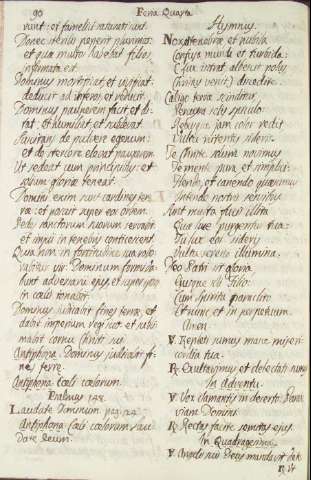 90
Feria Quarta
runt: et famelici saturati sunt
Donec sterilis peperit plurimos:
et quæ multos habebat filios,
infirmata est
Dominus mortificat, et vivificat:
deducit ad inferos, et reducit.
Dominus pauperem facit, et di
tat: et humiliat, et sublevat
Suscitans de pulvere egenum:
et de stercore elevat pauperem
Ut sedeat cum principibus: et
solium gloriæ teneat.
Domini enim sunt cardines ter
ræ: et posuit super eos orbem.
Pedes sanctorum suorum servabit
et impii in tenebris conticescent.
Quia non in fortitudine sua robo
rabitur vir: Dominum formida
bunt adversarii ejus, et super ipsos
in cælis tonabit.
Dominus judicabit fines terræ, et
dabit imperium regi suo, et subli
mabit cornu Christi sui
Antiphona. Dominus judicabit fi
nes terræ.
Antiphona Cæli cælorum.
Psalmus 148.
Laudate Dominum pag. 24.
Antiphona Cæli cælorum lau
date Deum.
Hymnus.
Nox et tenebræ et nubila
Confusa mundi et turbida
Lux intrat albescit polus
Christus venit, discedite.
Caligo terræ scinditur
Percussa solis spiculo
Rebusque jam color redit
Vultu nitentis sideris.
Te Christe solum novimus
Te mente pura et simplici
Flendo et canendo quæsumus
Intende nostris sensibus
Sunt multa fucis illita
Quæ luce purgentur tua:
Tu lux eoi sideris
Vultu sereno illumina.
Deo Patri sit gloria
Ejusque soli Filio:
Cum Spiritu paraclito
Et nunc et in perpetuum.
Amen
V. Repleti sumus mane miseri
cordia tua.
R. Exultavimus et delectati sumus
In adventu.
V. Vox clamantis in deserto: Parate
viam Domini
R. Rectas facite semitas ejus
In Quadragesima
V. Angelis suis Deus mandavit de te
R. Ut